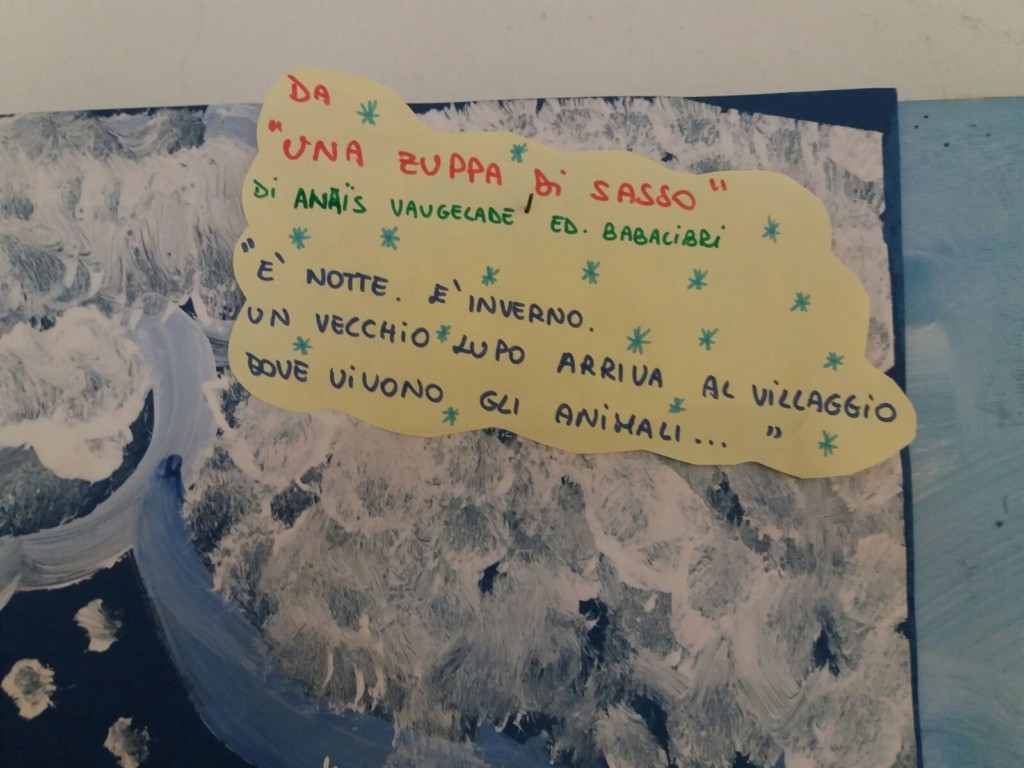 DA
"UNA ZUPPA Di SASSO"
Di ANAÏS VAUGELADE, ED. BABALIBRI
"E` NOTTE. E` INVERNO.
UN VECCHIO LUPO ARRIVA AL VILLAGGIO
DOVE VIVONO GLI ANIMALI... "